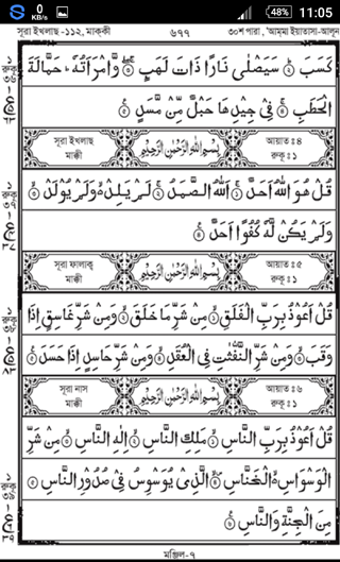 0 KB/s 48% 11:05
সূরা ইখলাছ -১১২, মাক্কী ৬৭৭ ৩০শ পারা , 'আম্মা ইয়াতাসা-আলূন
كَسَبَ ۞ سَيَصْلٰى نَارًا ذَاتَ لَهَبٍ ۞ وَّامْرَاَتُهٗ ؕ حَمَّالَةَ
الْحَطَبِ ۞ فِيْ جِيْدِهَا حَبْلٌ مِّنْ مَّسَدٍ ۞
সূরা ইখলাছ মাক্কী بِسْمِ اللهِ الرَّحْمٰنِ الرَّحِيْمِ আয়াত : ৪ রুকূ : ১
قُلْ هُوَ اللهُ اَحَدٌ ۞ اَللهُ الصَّمَدُ ۞ لَمْ يَلِدْ ۙ وَلَمْ يُوْلَدْ ۞
وَلَمْ يَكُنْ لَّهٗ كُفُوًا اَحَدٌ ۞
সূরা ফালাক্ব মাক্কী بِسْمِ اللهِ الرَّحْمٰنِ الرَّحِيْمِ আয়াত : ৫ রুকূ : ১
قُلْ اَعُوْذُ بِرَبِّ الْفَلَقِ ۞ مِنْ شَرِّ مَا خَلَقَ ۞ وَمِنْ شَرِّ غَاسِقٍ اِذَا
وَقَبَ ۞ وَمِنْ شَرِّ النَّفّٰثٰتِ فِي الْعُقَدِ ۞ وَمِنْ شَرِّ حَاسِدٍ اِذَا حَسَدَ ۞
সূরা নাস মাক্কী بِسْمِ اللهِ الرَّحْمٰنِ الرَّحِيْمِ আয়াত : ৬ রুকূ : ১
قُلْ اَعُوْذُ بِرَبِّ النَّاسِ ۞ مَلِكِ النَّاسِ ۞ اِلٰهِ النَّاسِ ۞ مِنْ شَرِّ
الْوَسْوَاسِ ۙ الْخَنَّاسِ ۞ الَّذِيْ يُوَسْوِسُ فِيْ صُدُوْرِ النَّاسِ ۞
مِنَ الْجِنَّةِ وَالنَّاسِ ۞
মঞ্জিল-৭